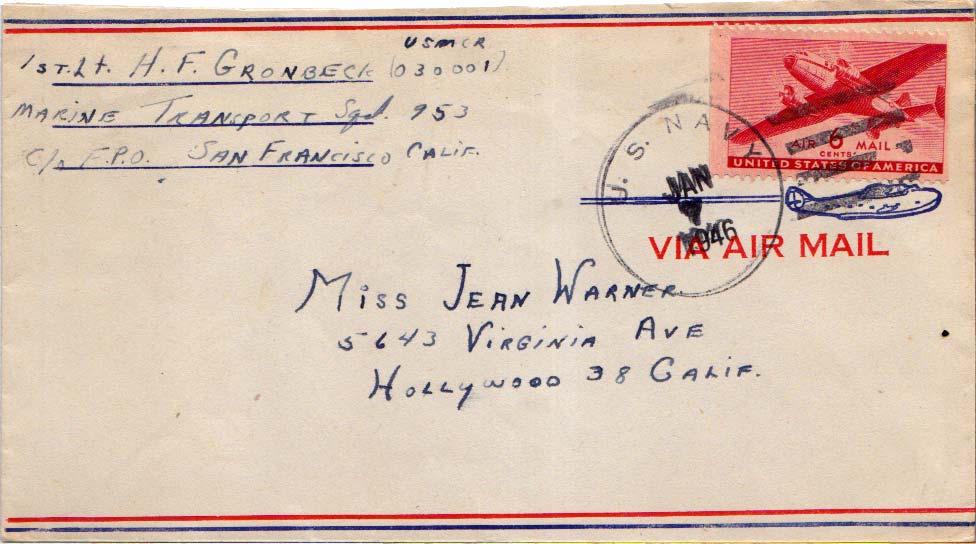 USMCR
1st. Lt. H. F. GRONBECK (030001)
MARINE TRANSPORT Sqd. 953
C/o F.P.O. SAN FRANCISCO CALIF.
U. S. NAVY
JAN
7
1946
AIR 6 MAIL
CENTS
UNITED STATES OF AMERICA
VIA AIR MAIL
MISS JEAN WARNER
5643 VIRGINIA AVE
HOLLYWOOD 38 CALIF.